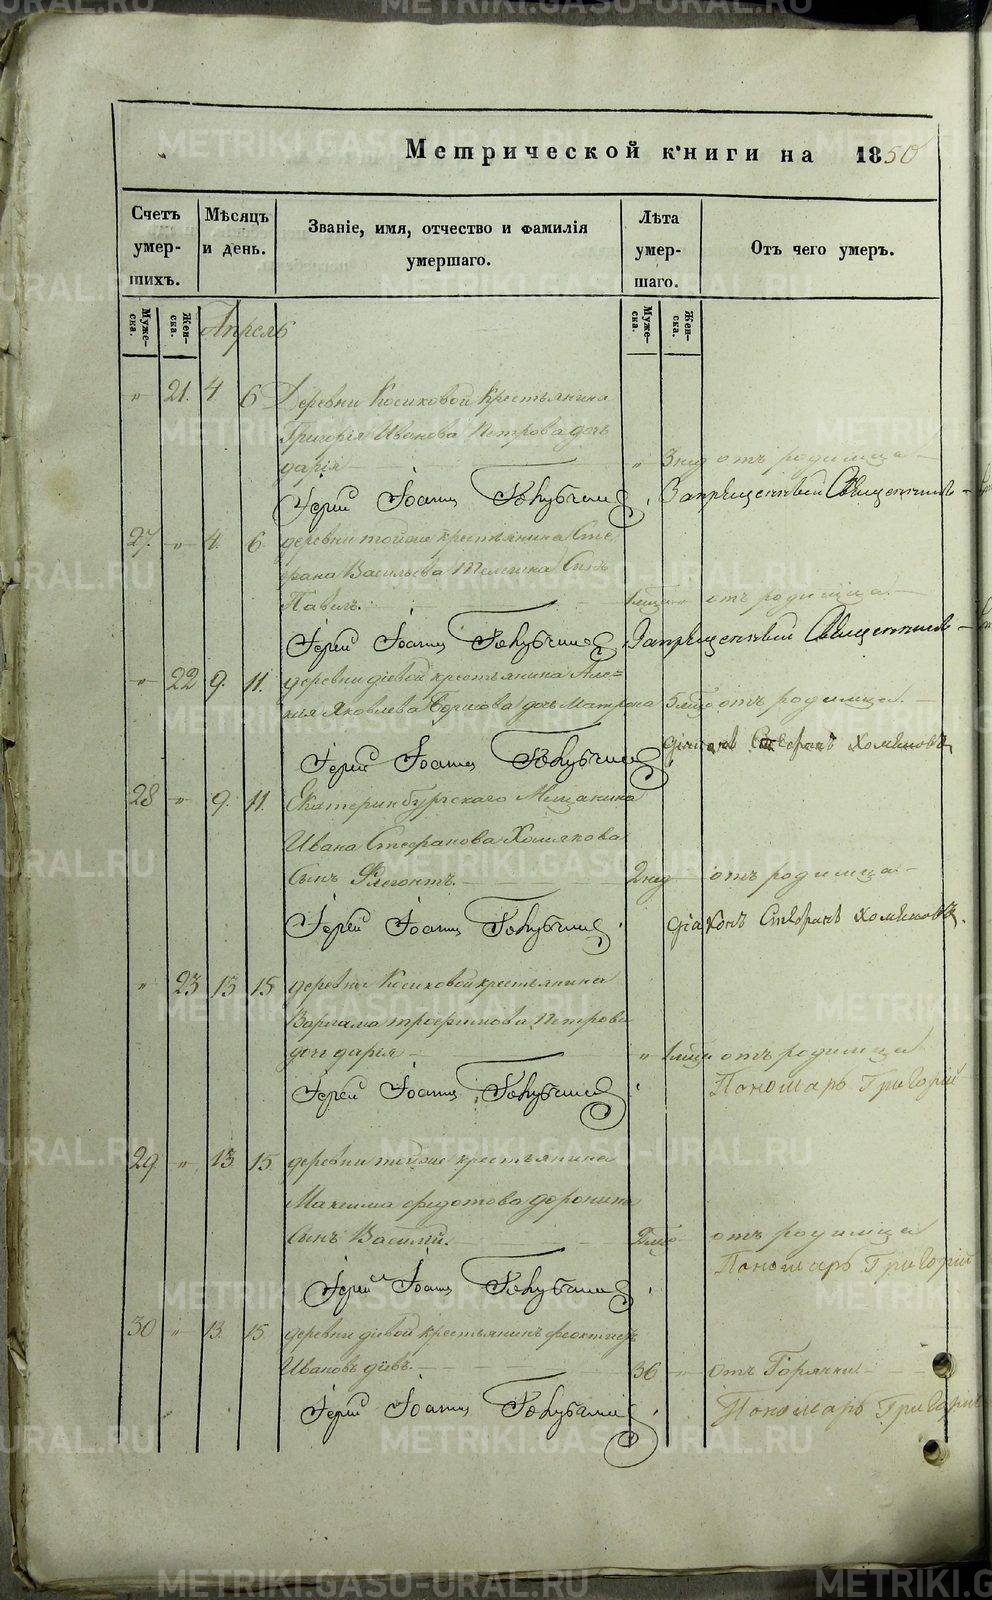 Метрической книги на 1850
Счетъ умер- шихъ.
Мѣсяцъ и день.
Званіе, имя, отчество и фамилія умершаго.
Лѣта умер- шаго.
Отъ чего умеръ.
Муже- ска.
Жен- ска.
Муже- ска.
Жен- ска.
Апрель
" 21. 4 6 Деревни Косиковой крестьянина
Григорія Иванова Петрова дочь
дарія " 3 нед отъ родимца
Іерей Іоаннъ Запрещенный Священникъ
27. " 4. 6. деревни тойже крестьянина Сте
фана Васильева Телегина Сынъ
Павелъ. отъ родимца.
Іерей Іоаннъ Запрещенный Священникъ
" 22 9. 11. деревни діевой крестьянина Але-
Яковлева дочь Матрона 5 отъ родимца.
Іерей Іоаннъ діаконъ Стефанъ Хомяковъ
28 " 9. 11. Екатеринбургскаго Мещанина
Ивана Стефанова Хомякова
Сынъ Флегонтъ. 2 нед отъ родимца
Іерей Іоаннъ діаконъ Стефанъ Хомяковъ.
" 23 13 15 деревни Косиковой крестьянина
Варлама трофимова Петрова
дочь дарія " отъ родимца
Іерей Іоаннъ Пономарь Григорій
29. " 13. 15. деревни тойже крестьянина
Максима федотова доронина
Сынъ Василій. отъ родимца
Іерей Іоаннъ Пономарь Григорій
30 " 13. 15. деревни діевой крестьянинъ феоктистъ
Ивановъ діевъ. 36 " отъ Горячки
Іерей Іоаннъ Пономарь Григорій
METRIKI.GASO-URAL.RU